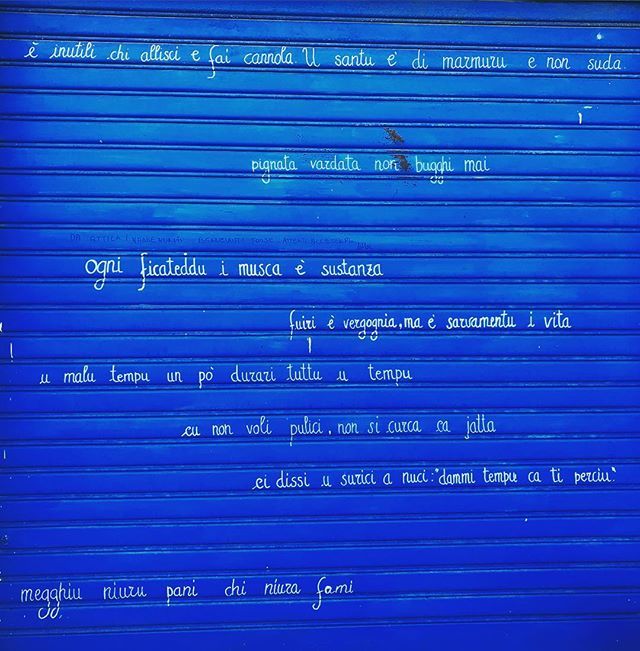 è inutili chi allisci e fai cannola. U santu è di marmuru e non suda.
pignata vardata non bugghi mai
ogni ficateddu i musca è sustanza
fuiri è vergognia, ma è sarvamentu i vita
u malu tempu un pò durari tuttu u tempu
cu non voli pulici, non si curca ca jatta
ci dissi u surici a nuci: "dammi tempu ca ti perciu."
megghiu niuru pani chi niura fami